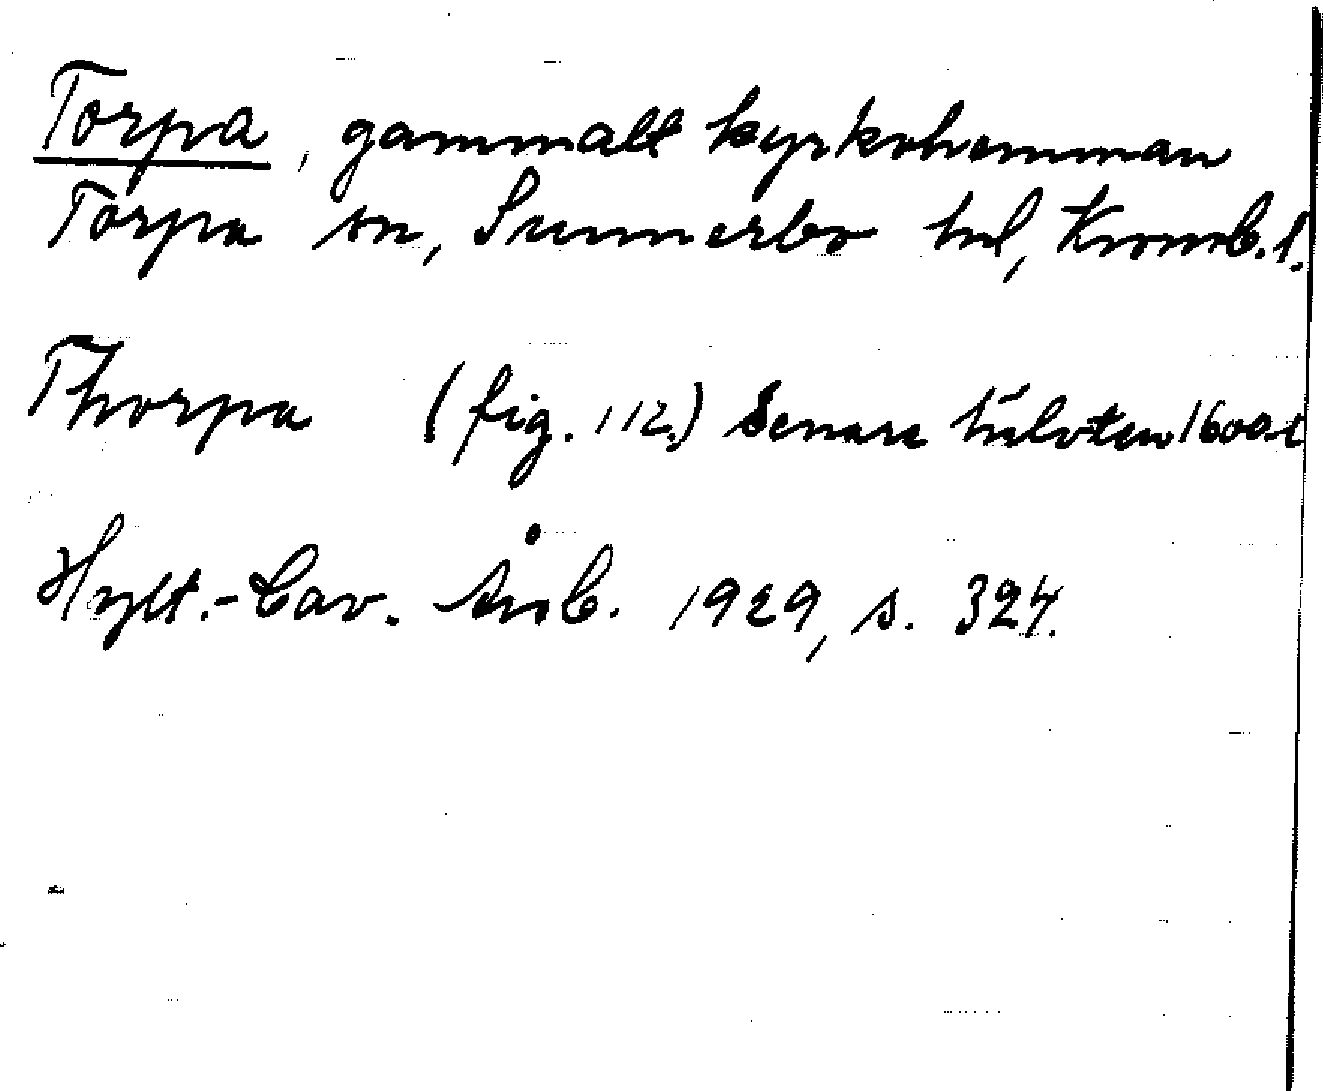 Torpa, gammalt kyrkohemman
Torpa sn, Sunnerbo hd, Kronob. l.
Thorpa (fig. 112.) Senare hälvten 1600-t
Hylt.-Cav. Årsb. 1929, s. 324.